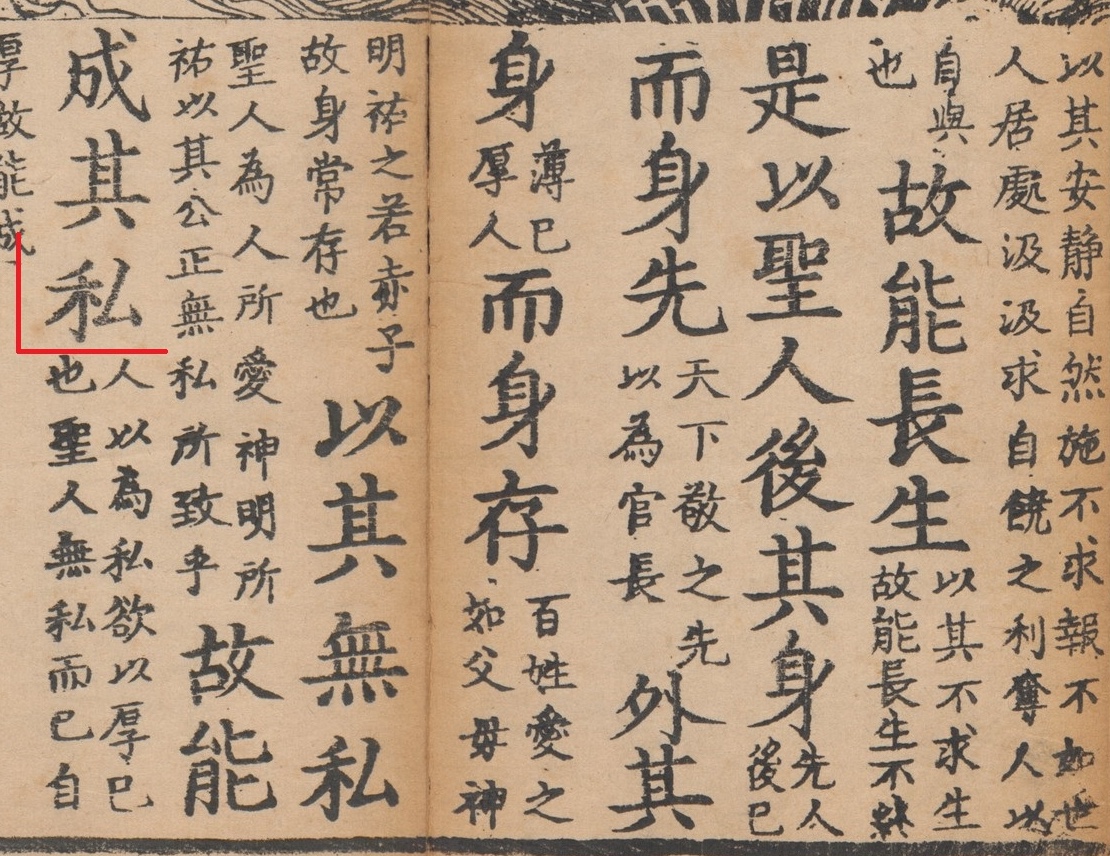 以其安靜自然施不求報不如世
人居處汲汲求自饒之利奪人以
自與
也
故能長生
以其不求生
故能長生不終
是以聖人後其身
先人
後已
而身先
天下敬之先
以為官長
外其
身
薄已
厚人
而身存
百姓愛之
如父母神
明祐之若赤子
故身常存也
以其無私
聖人為人所愛神明所
祐以其公正無私所致乎
故能
成其私
人以為私欲以厚已
也聖人無私而已自
厚故能成